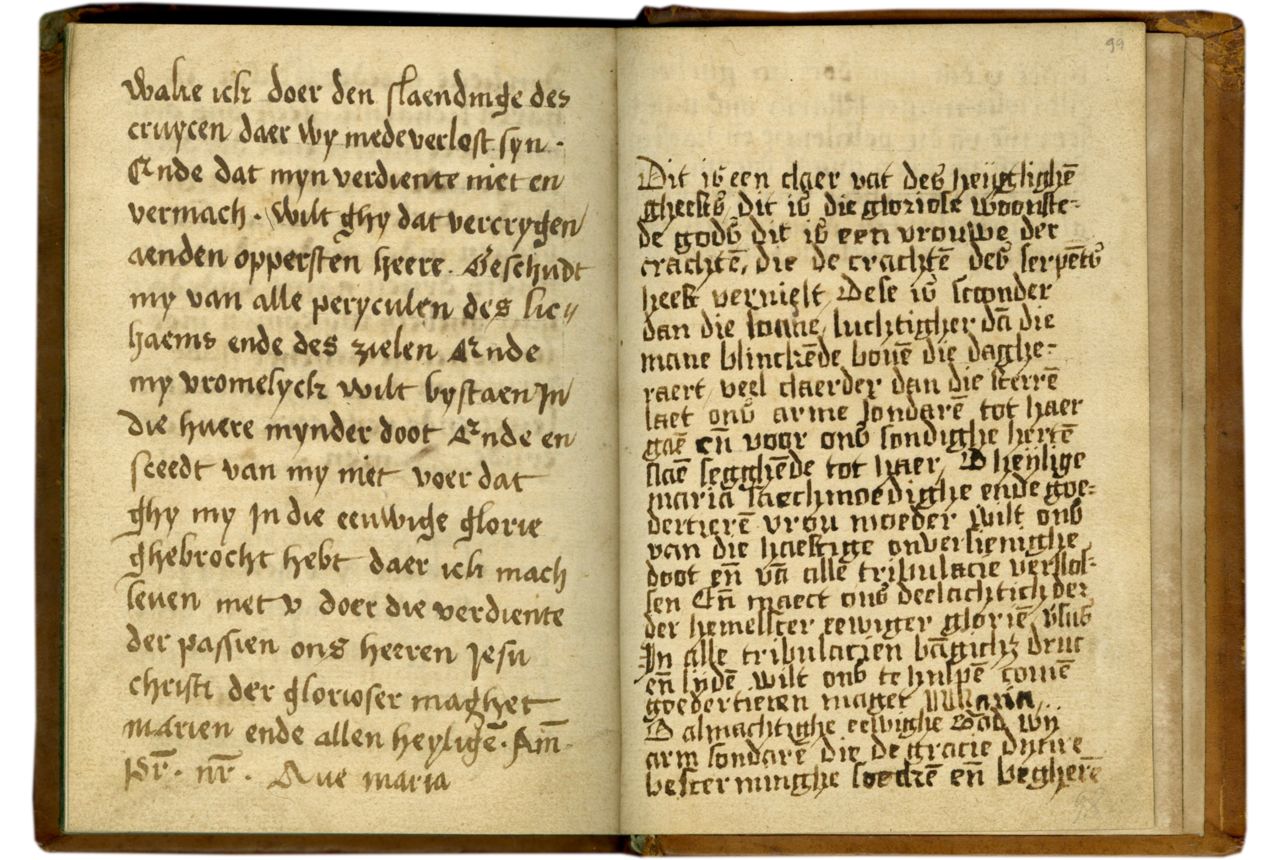 Wake ick doer den slaendinge des
cruycen daer wy mede verlost syn ·
Ende dat myn verdiente niet en
vermach · Wilt ghy dat vercrygen
aenden oppersten heere · Geschudt
my van alle peryculen des lic //
haems ende des zielen Ende
my vromelyck wilt bystaen In
die huere mynder doot Ende en
sceedt van my niet voer dat
ghy my In die eeuwige glorie
ghebrocht hebt daer ick mach
leven met v doer die verdiente
der passien ons heeren Jesu
christi der glorioser maghet
marien ende allen heyligē · Am̄ ·
Pr̄ · nr̄ · Aue maria
99
Dit is een claer vat des heijylighē
gheests dit is die gloriose woonste-
de gods dit is een vrouwe der
crachtē, die de crachtē des serpēts
heeft vernielt Dese is scoonder
dan die sonne, luchtigher dā die
mane blinckēde bouē die daghe-
raert, veel claerder dan die sterrē
laet ons arme sondarē tot haer
gaē en̄ voor ons sondighe hertē
slaē segghēde tot haer, O heylige
maria saechmoedighe ende goe-
dertierē vrou moeder wilt ons
van die haestige onversienighe
doot en̄ vā allē tribulacie verlos-
sen En̄ maect ons deelachtich der
der hemelscer eewiger gloriē
In alle tribulacien druc
en̄ lydē wilt ons te hulpē comē
goedertieren maget Maria
O almachtighe eewighe God wy
arm sondarē die de gracie dynre
bescerminghe soeckē en̄ begherē
98